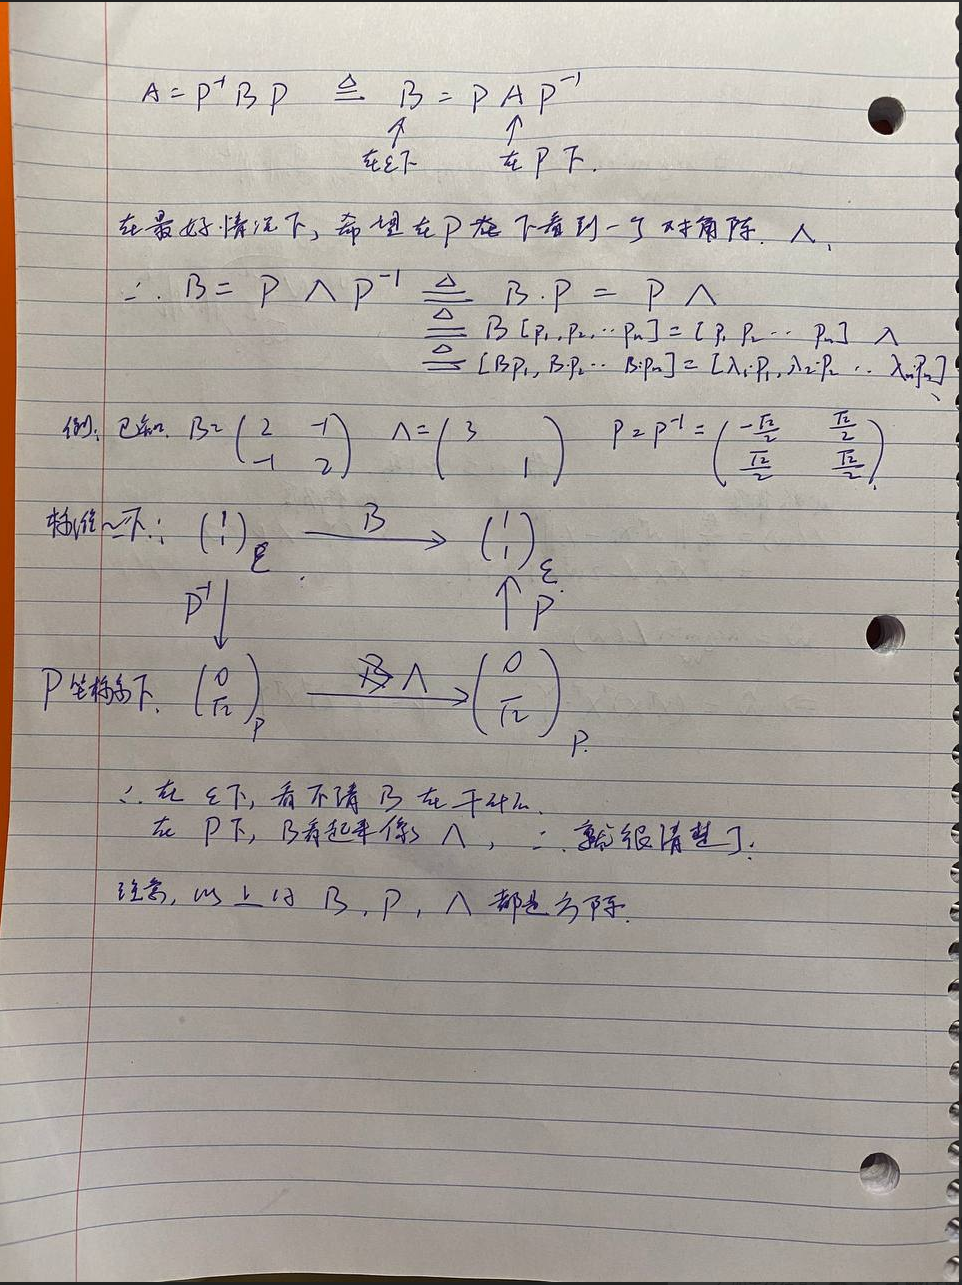 A = P⁻¹ B P ≜ B = P A P⁻¹
在ε下 在P下.
在最好情况下, 希望在P下看到一个对角阵. Λ.
∴ B = P Λ P⁻¹ ≜ B·P = P Λ
≜ B [p₁, p₂, ·· pₙ] = [p₁ p₂ ·· pₙ] Λ
≜ [Bp₁, B·p₂ ·· B·pₙ] = [λ₁·p₁, λ₂·p₂ ·· λₙ·pₙ]
例: 已知. B = (2 -1 Λ = (3 P = P⁻¹ = (-√2/2 √2/2
-1 2) 1) √2/2 √2/2)
标准~下: (1 1)ε B (1 1)ε.
P⁻¹ P
P坐标系下. (0 √2)P Λ (0 √2)P.
∴ 在 ε下, 看不清 B 在干什么.
在 P下, B看起来像 Λ, ∴ 就很清楚了.
注意, 以上的 B, P, Λ 都是方阵.